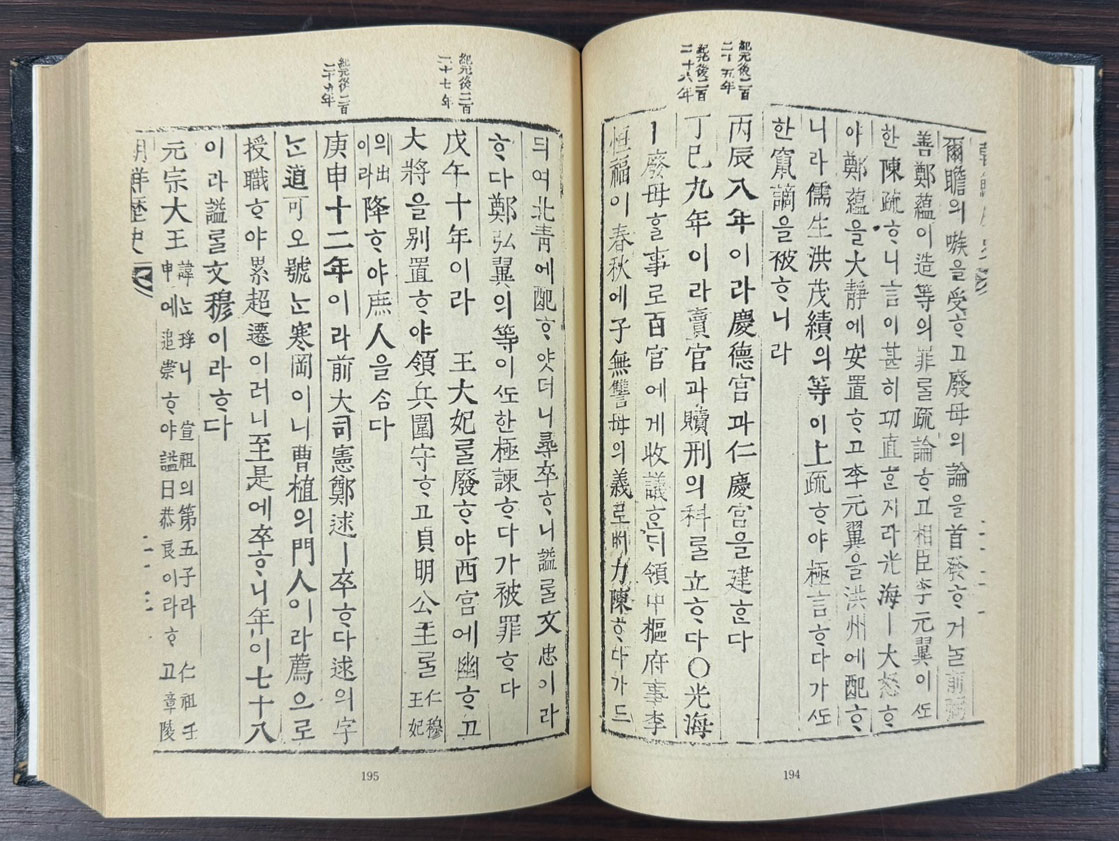 紀元後二百
二十五年
紀元後二百
二十六年
爾瞻의嗾을受ᄒᆞ고廢母의論을首發ᄒᆞ거ᄂᆞᆯ前
善鄭蘊이造等의罪ᄅᆞᆯ疏論ᄒᆞ고相臣李元翼이ᄯᅩ
한陳疏ᄒᆞ니言이甚히切直ᄒᆞᆫ지라光海ㅣ大怒ᄒᆞ
야鄭蘊을大靜에安置ᄒᆞ고李元翼을洪州에配ᄒᆞ
니라儒生洪茂績의等이上疏ᄒᆞ야極言ᄒᆞ다가ᄯᅩ
한竄謫을被ᄒᆞ니라
丙辰八年이라慶德宮과仁慶宮을建ᄒᆞᆫ다
丁巳九年이라賣官과贖刑의科ᄅᆞᆯ立ᄒᆞ다○光海
ㅣ廢母ᄒᆞᆯ事로百官에게收議ᄒᆞᆫᄃᆡ領中樞府事李
恒福이春秋에子無讐母의義로ᄡᅥ力陳ᄒᆞ다가드
194
紀元後二百
二十七年
紀元後二百
二十九年
듸여北靑에配ᄒᆞ얏더니尋卒ᄒᆞ니謚ᄅᆞᆯ文忠이라
ᄒᆞ다鄭弘翼의等이ᄯᅩ한極諫ᄒᆞ다가被罪ᄒᆞ다
戊午十年이라 王大妃ᄅᆞᆯ廢ᄒᆞ야西宮에幽ᄒᆞ고
大將을別置ᄒᆞ야領兵圍守ᄒᆞ고貞明公主ᄅᆞᆯ仁穆王妃
의出이라降ᄒᆞ야庶人을삼다
庚申十二年이라前大司憲鄭逑ㅣ卒ᄒᆞ다逑의字
ᄂᆞᆫ道可오號ᄂᆞᆫ寒岡이니曹植의門人이라薦으로
授職ᄒᆞ야累超遷이러니至是에卒ᄒᆞ니年이七十八
이라謚ᄅᆞᆯ文穆이라ᄒᆞ다
元宗大王 諱ᄂᆞᆫ琈니 宣祖의第五子라 仁祖壬
申에追崇ᄒᆞ야謚曰恭良이라ᄒᆞ고章陵
朝鮮歷史
195